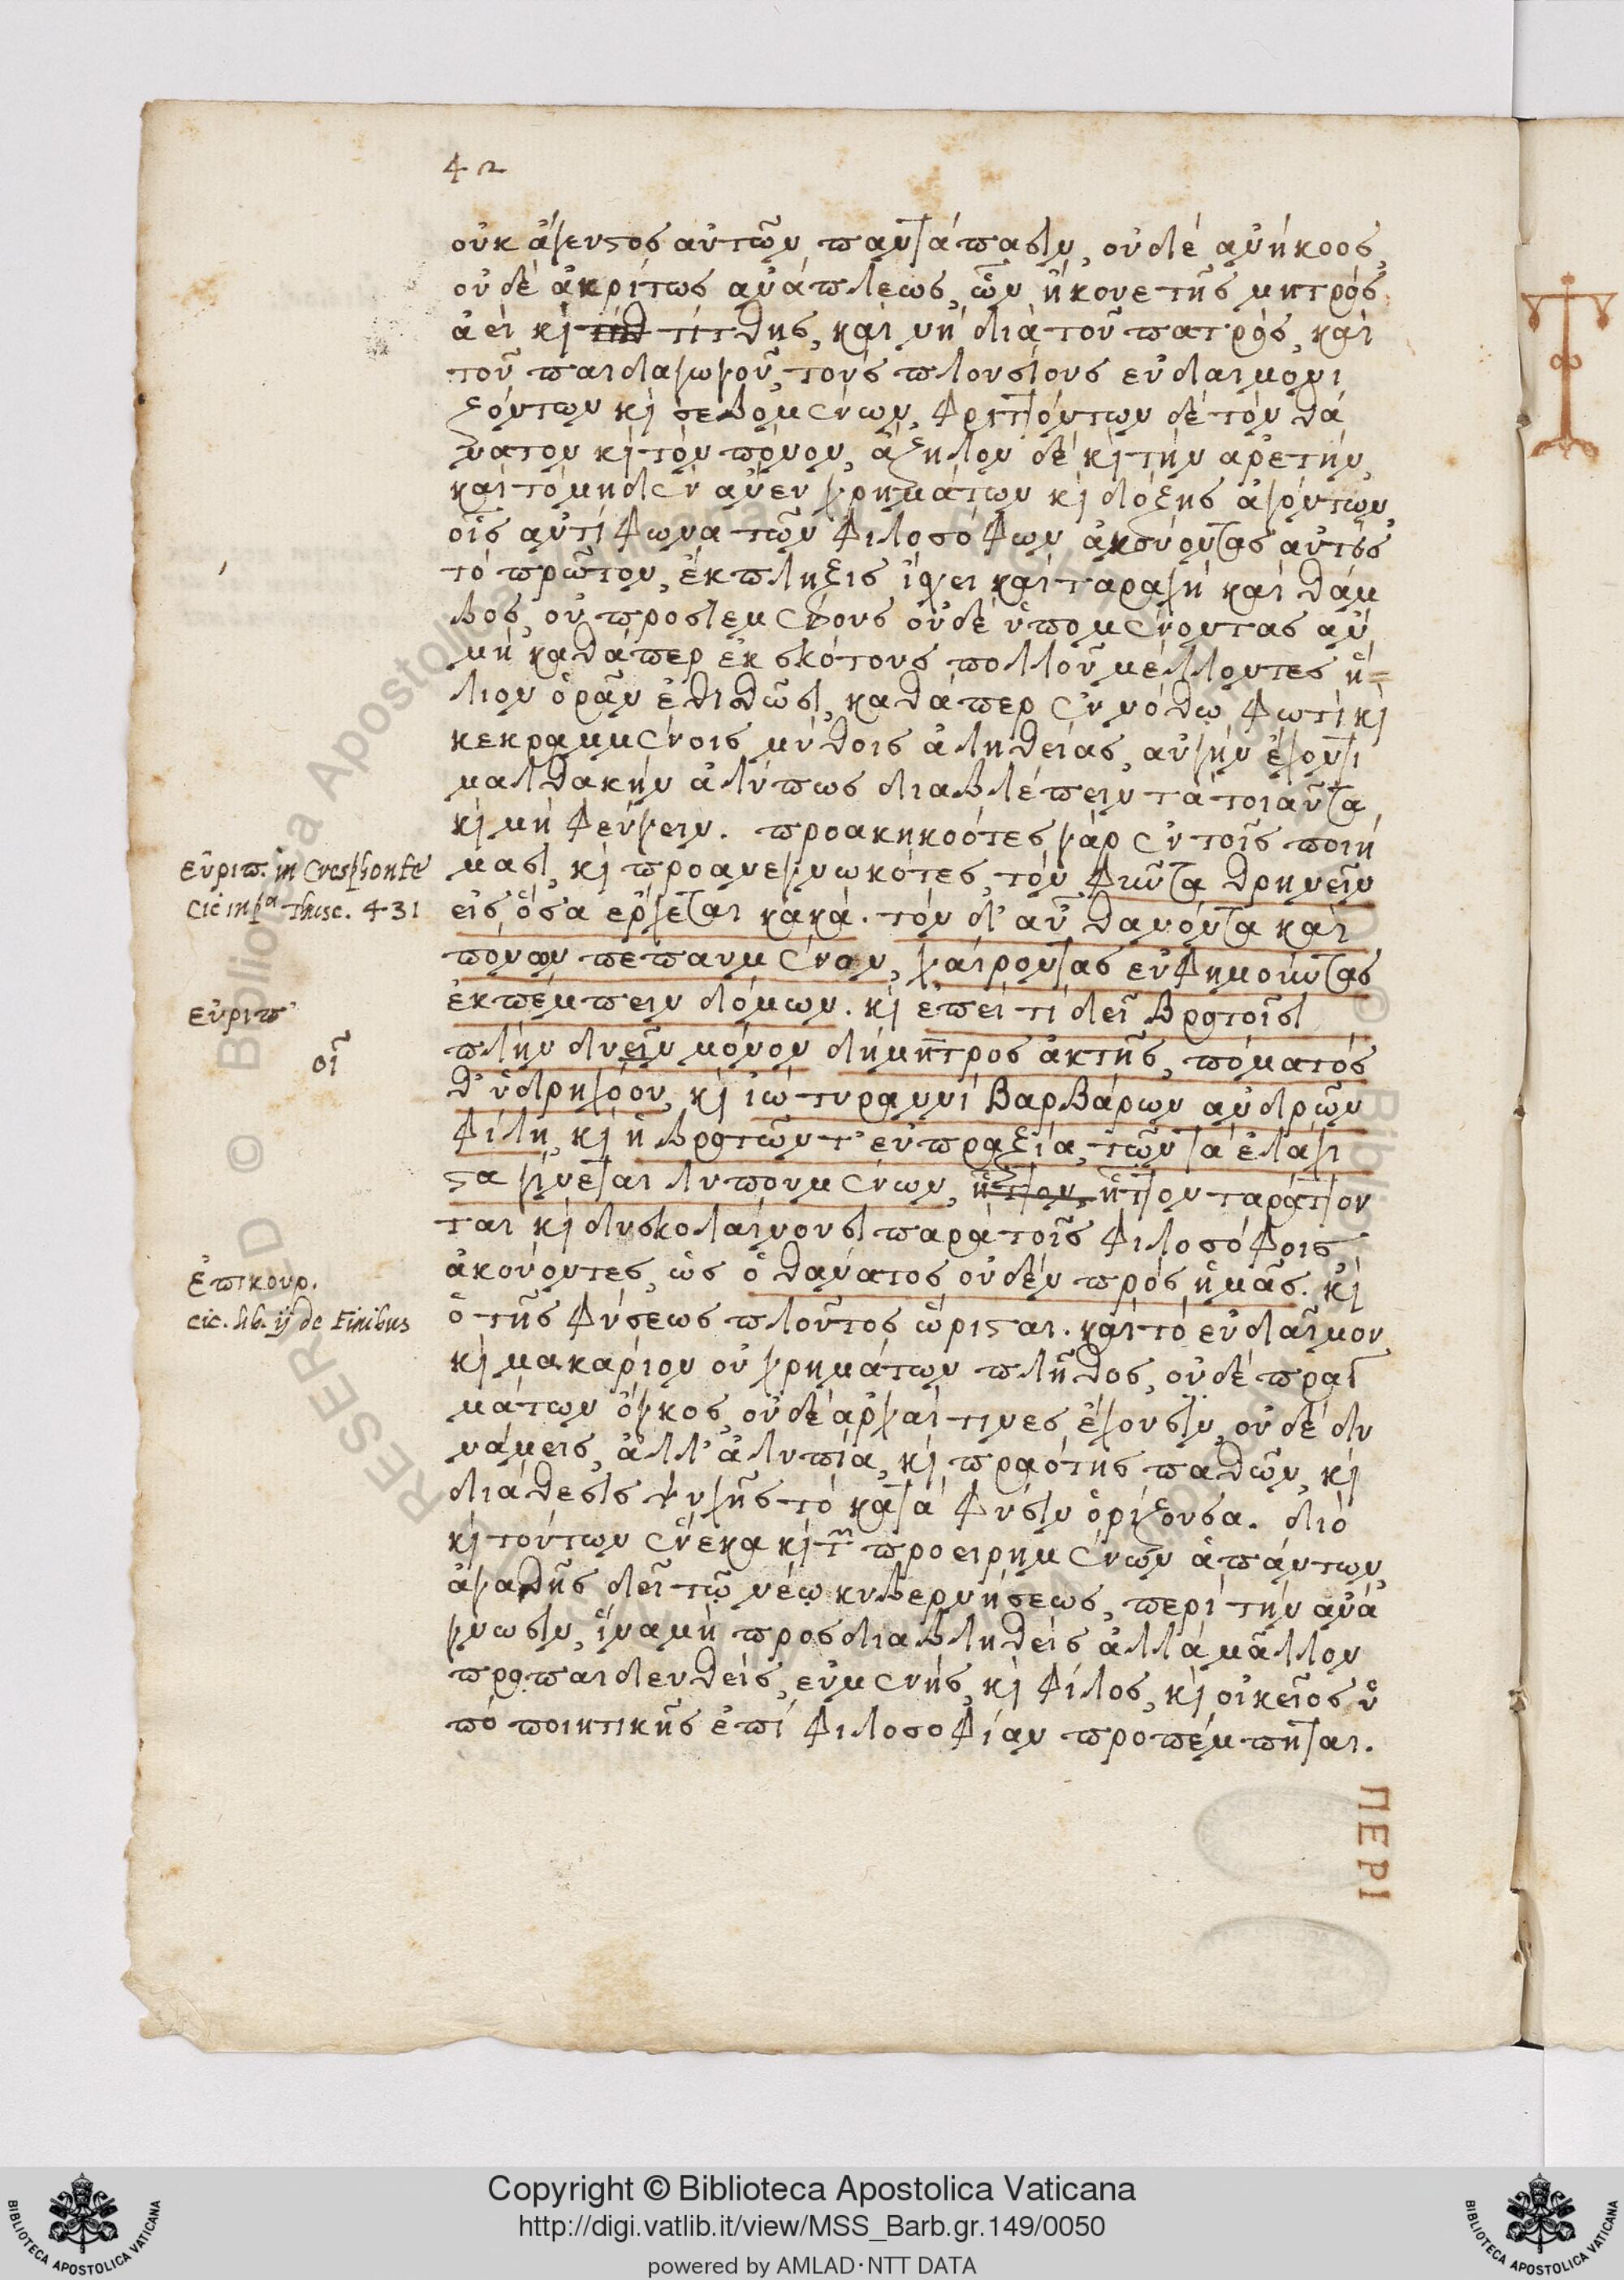 42
οὐκ ἄγευστος αὐτῶν παντάπασιν, οὐδὲ ἀνήκοος,
οὐδὲ ἀκρίτως ἀνάπλεως, ὧν ἤκουε τῆς μητρὸς
ἀεὶ κὶ τίτθης, καὶ νὴ δία τοῦ πατρὸς, καὶ
τοῦ παιδαγωγοῦ, τοὺς πλουσίους εὐδαιμονι
ζόντων κὶ σεβομένων, φριττόντων δὲ τὸν θά
νατον κὶ τὸν πόνον, ἄζηλον δὲ κὶ τὴν ἀρετὴν,
καὶ τὸ μηδὲν ἄνευ χρημάτων κὶ δόξης ἀγόντων,
οἷς ἀντίφωνα τῶν φιλοσόφων ἀκούοντας αὐτοὺς
τὸ πρῶτον, ἔκπληξις ἴσχει καὶ ταραχὴ καὶ θάμ
βος, οὐ προσιεμένους οὐδὲ ὑπομένοντας ἂν
μὴ καθάπερ ἐκ σκότους πολλοῦ μέλλοντες ἥ=
λιον ὁρᾶν ἐθιθῶσι, καθάπερ ἐν νόθῳ φωτὶ κὶ
κεκραμμένοις μύθοις ἀληθείας, αὐγὴν ἔχοντι
μαλθακὴν ἀλύπως διαβλέπειν τὰ τοιαῦτα,
κὶ μὴ φεύγειν. προακηκοότες γὰρ ἐν τοῖς ποιή
μασι, κὶ προανεγνωκότες, τὸν φῦντα θρηνεῖν
εἰς ὅσα ἔρχεται κακά. τὸν δ' αὖ θανόντα καὶ
πόνων πεπαυμένον, χαίροντας εὐφημοῦντας
ἐκπέμπειν δόμων. κὶ ἐπεὶ τί δεῖ βροτοῖσι
πλὴν δυεῖν μόνον δήμητρος ἀκτῆς, πόματός
θ' ὑδρηχόον, κὶ ἰὼ τυραννὶ βαρβάρων ἀνδρῶν
φίλη, κὶ ἡ βροτῶν τ' εὐπραξία, τῶν τὰ ἐλάχι
στα γίνεται λυπουμένων, ἧττον ταράττον
ται κὶ δυσκολαίνουσι παρὰ τοῖς φιλοσόφοις
ἀκούοντες, ὡς ὁ θάνατος οὐδὲν πρὸς ἡμᾶς. κὶ
ὁ τῆς φύσεως πλοῦτος ὥρισται. καὶ τὸ εὔδαιμον
κὶ μακάριον οὐ χρημάτων πλῆθος, οὐδὲ πραγ
μάτων ὄγκος, οὐδὲ ἀρχαί τινες ἔχουσιν, οὐδὲ δυ
νάμεις, ἀλλ' ἀλυπία, κὶ πραότης παθῶν, κὶ
διάθεσις ψυχῆς τὸ κατὰ φύσιν ὁρίζουσα. διὸ
κὶ τούτων ἕνεκα κὶ τῶν προειρημένων ἁπάντων,
ἀγαθῆς δεῖ τῷ νέῳ κυβερνήσεως, περὶ τὴν ἀνά
γνωσιν, ἵνα μὴ προσδιαβληθεὶς ἀλλὰ μᾶλλον
προπαιδευθεὶς, εὐμενὴς, κὶ φίλος, κὶ οἰκεῖος ὑ
πὸ ποιητικῆς ἐπὶ φιλοσοφίαν προπέμπηται.
ΠΕΡΙ
εὐριπ. in Cresphonte
Cic. inf.ª Thusc. 431
εὐριπ'
οἷ
ἐπικουρ.
cic. lib. ij de Finibus
RESERVED © Biblioteca Apostolica Vaticana
Copyright © Biblioteca Apostolica Vaticana
http://digi.vatlib.it/view/MSS_Barb.gr.149/0050
powered by AMLAD·NTT DATA
BIBLIOTECA APOSTOLICA VATICANA
BIBLIOTECA APOSTOLICA VATICANA